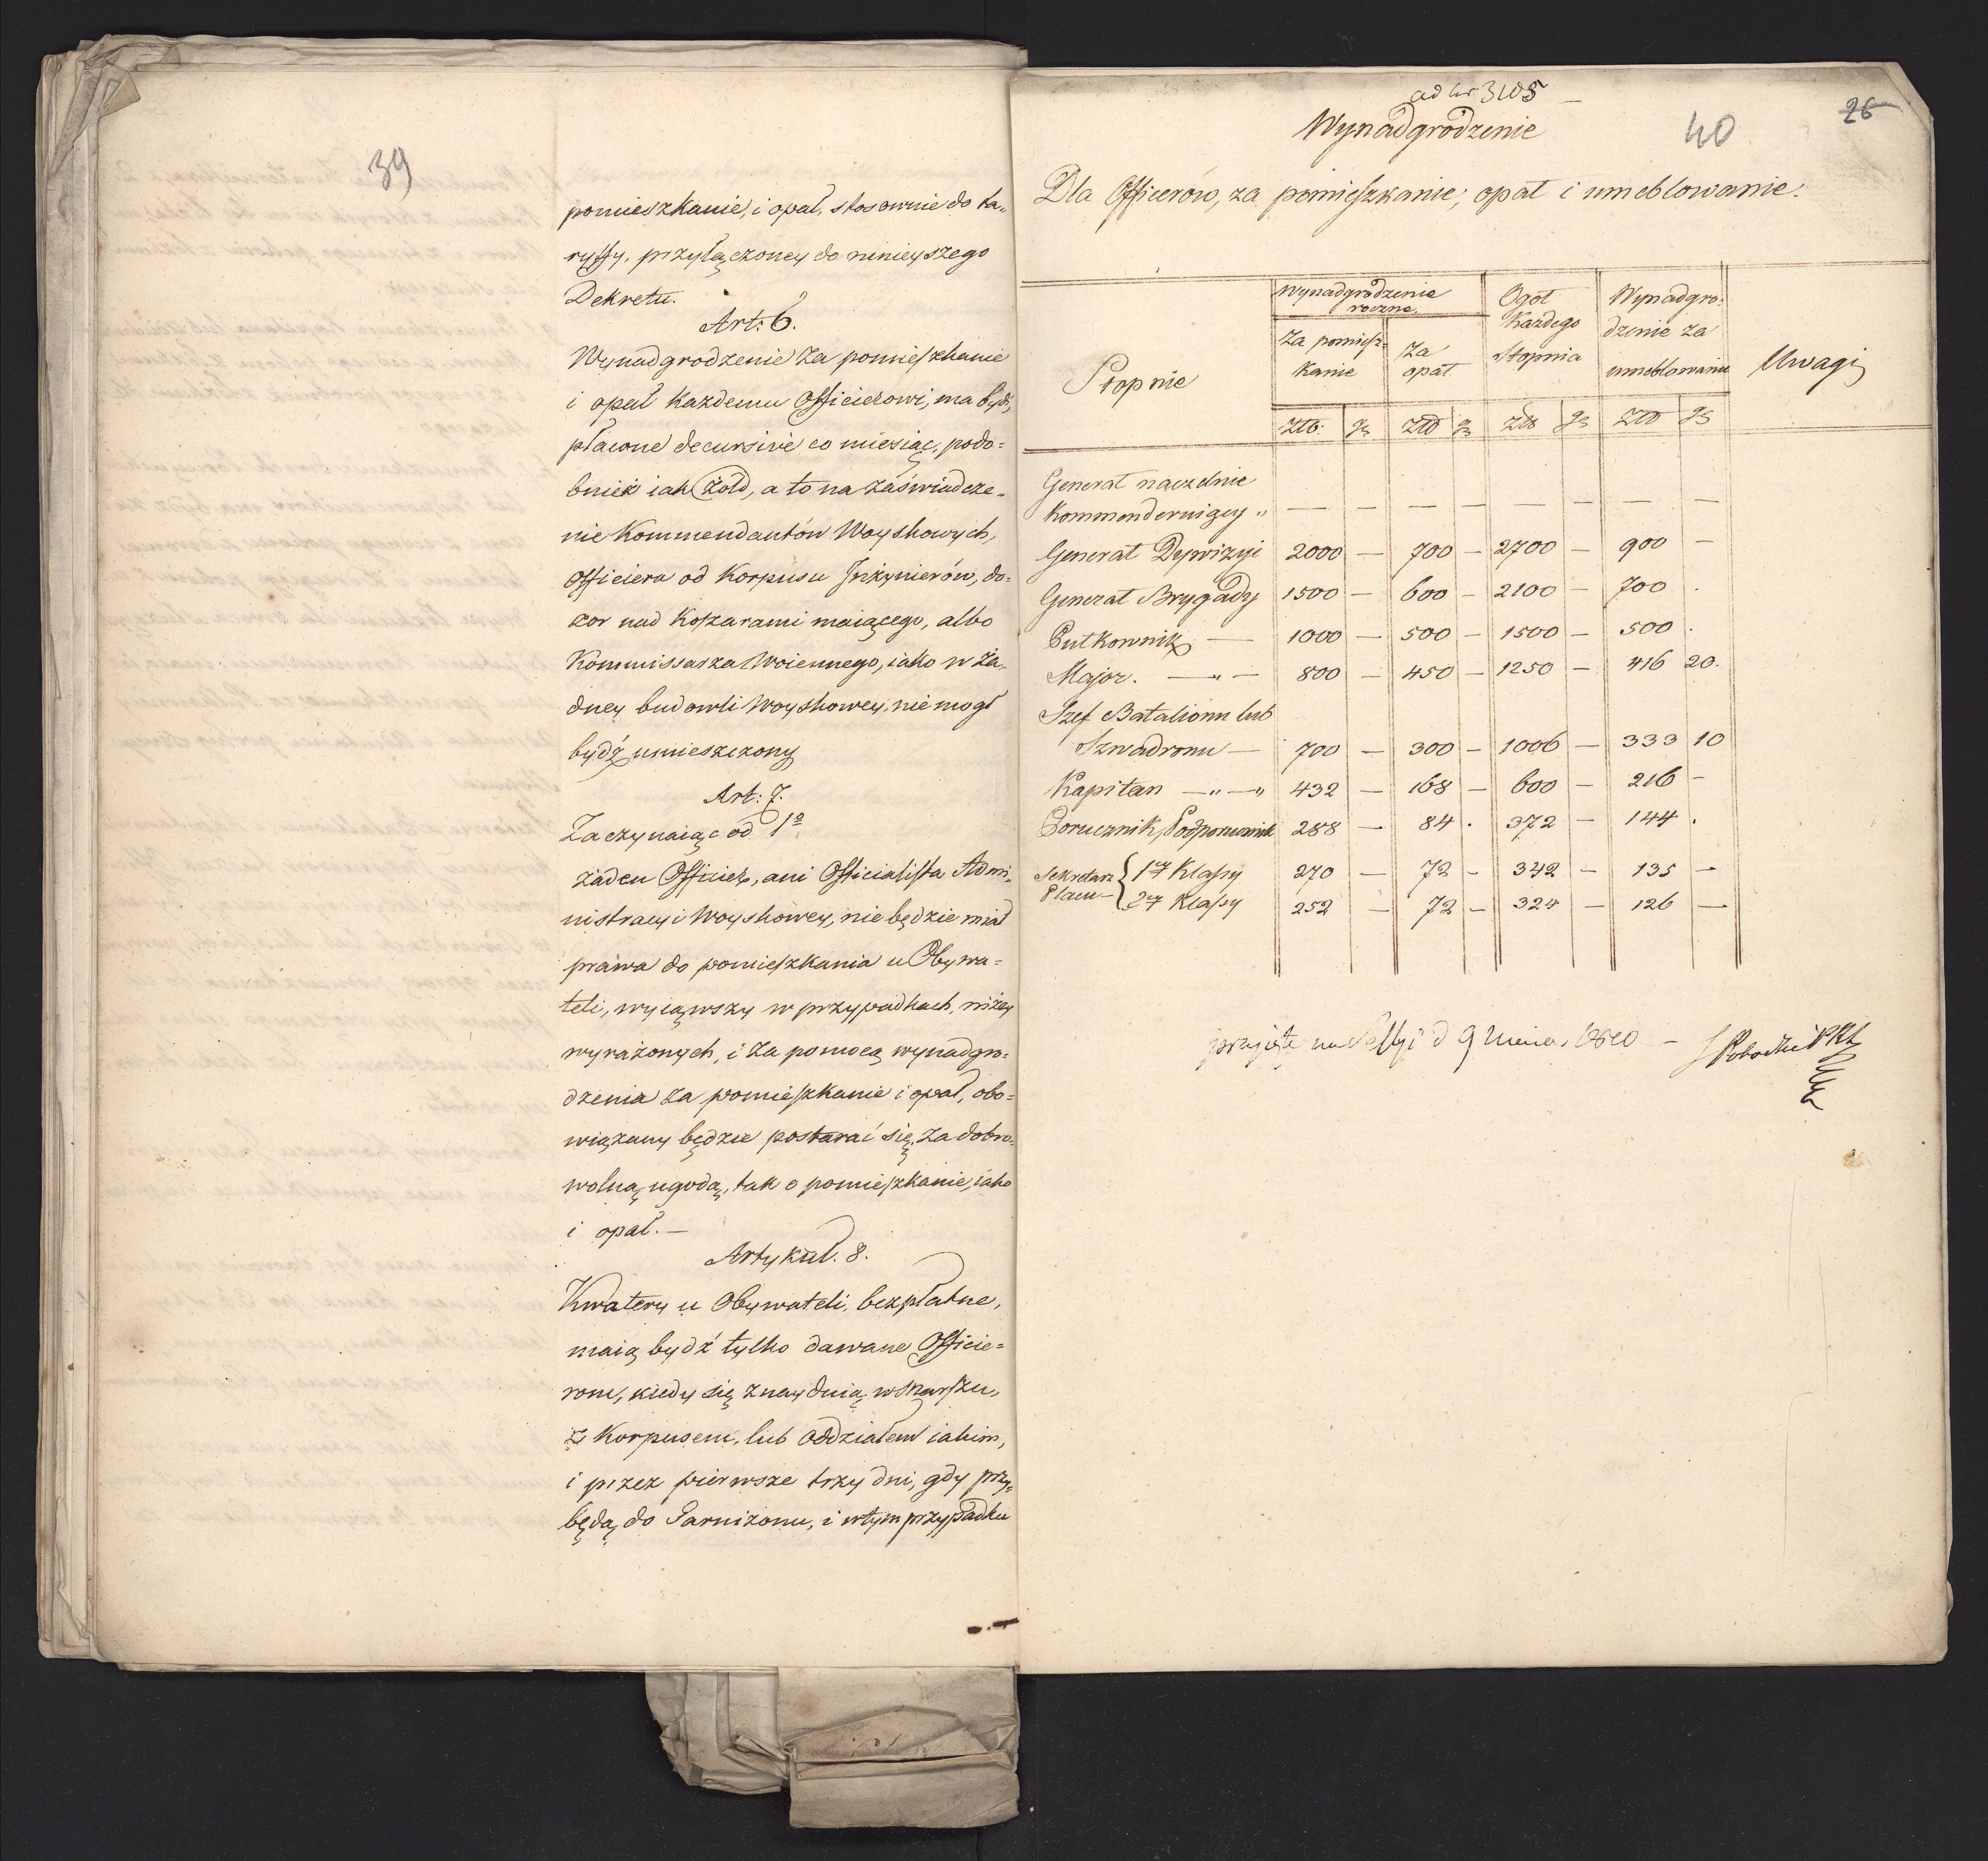 39
pomieszkanie, i opał, stosownie do ta„
ryffy, przyłączoney do ninieyszego
Dekretu.
Art: 6.
Wynadgrodzenie za pomieszkanie
i opał każdemu Officierowi, ma bydź,
płacone decursivè co miesiąc, podo=
bnież iak żołd, a to na zaświadcze„
nie Kommendantów Woyskowych,
Officiera od Korpusu Inżynierów, do=
zor nad Koszarami maiącego, albo
Kommissarza Woiennego, iako w ża„
dney budowli Woyskowey, nie mogł
bydź umieszczony
Art: 7.
Zaczynaiąc od 1º
żaden Officier, ani Officialista Admi„
nistracyi Woyskowey, nie będzie miał
prawa do pomieszkania u Obywa=
teli, wyiąwszy w przypadkach, niżey
wyrażonych, i za pomocą wynadgro=
dzenia za pomieszkanie i opał, obo=
wiązany będzie postarać się, za dobro„
wolną ugodą, tak o pomieszkanie, iako
i opał. —
Artykuł. 8.
Kwatery u Obywateli, bezpłatne,
maią bydź tylko dawane Officie=
rom, kiedy się znayduią w Marszu,
z Korpusem, lub oddziałem iakim,
i przez pierwsze trzy dni, gdy przy„
będą do Garnizonu, i w tym przypadku
ad Nr 3105
26
40
Wynadgrodzenie
Dla Officerów, za pomieszkanie, opał i umeblowanie.
Stopnie | Wynadgrodzenie roczne | Ogół Każdego Stopnia | Wynadgro- dzenie za umeblowanie | Uwagi
Za pomiesz- kanie | Za opał
Złtb: | gr | Złtb | gr | Złtb | gr | Złtb | gr
Generał naczelnie
Kommenderuiący „ — — — — — — — —
Generał Dywizyi 2000 — 700 — 2700 — 900 —
Generał Brygady 1500 — 600 — 2100 — 700 .
Pułkownik — 1000 — 500 — 1500 — 500 .
Major. — „ — 800 — 450 — 1250 — 416 20.
Szef Batalionu lub
Szwadronu — 700 — 300 — 1006 — 333 10
Kapitan — „ — „ 432 — 168 — 600 — 216 —
Porucznik, Podporucznik 288 — 84 . 372 — 144 .
Sekretarz Placu — { 1ey Klassy 270 — 72 — 342 — 135 —
2ey Klassy 252 — 72 — 324 — 126 —
przyięte na Sessyi d 9 1810 —